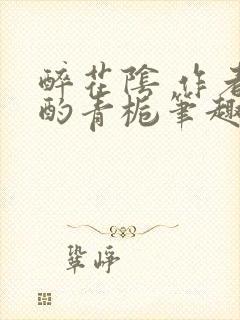 醉花陰 作者
酌青梔筆趣
鞏崢